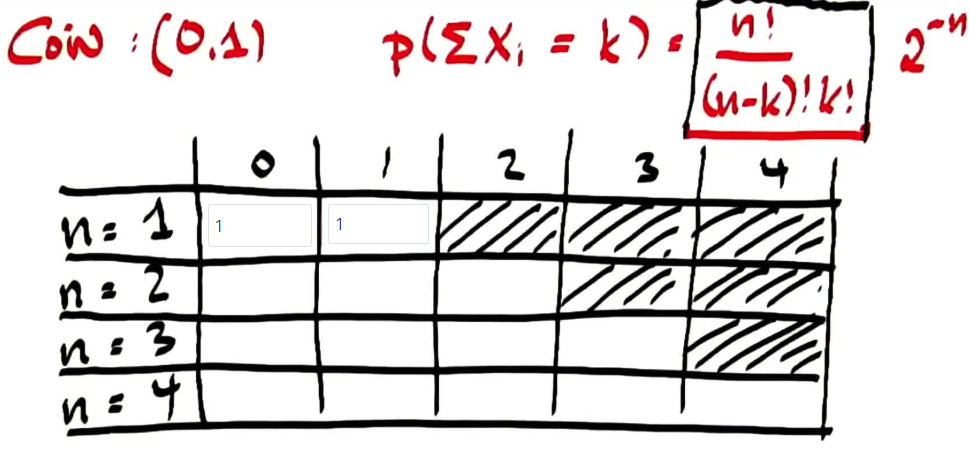 Coin : (0.1) p(Σ Xᵢ = k) = n! / (n-k)! k! 2⁻ⁿ
0 1 2 3 4
n = 1 1 1
n = 2
n = 3
n = 4